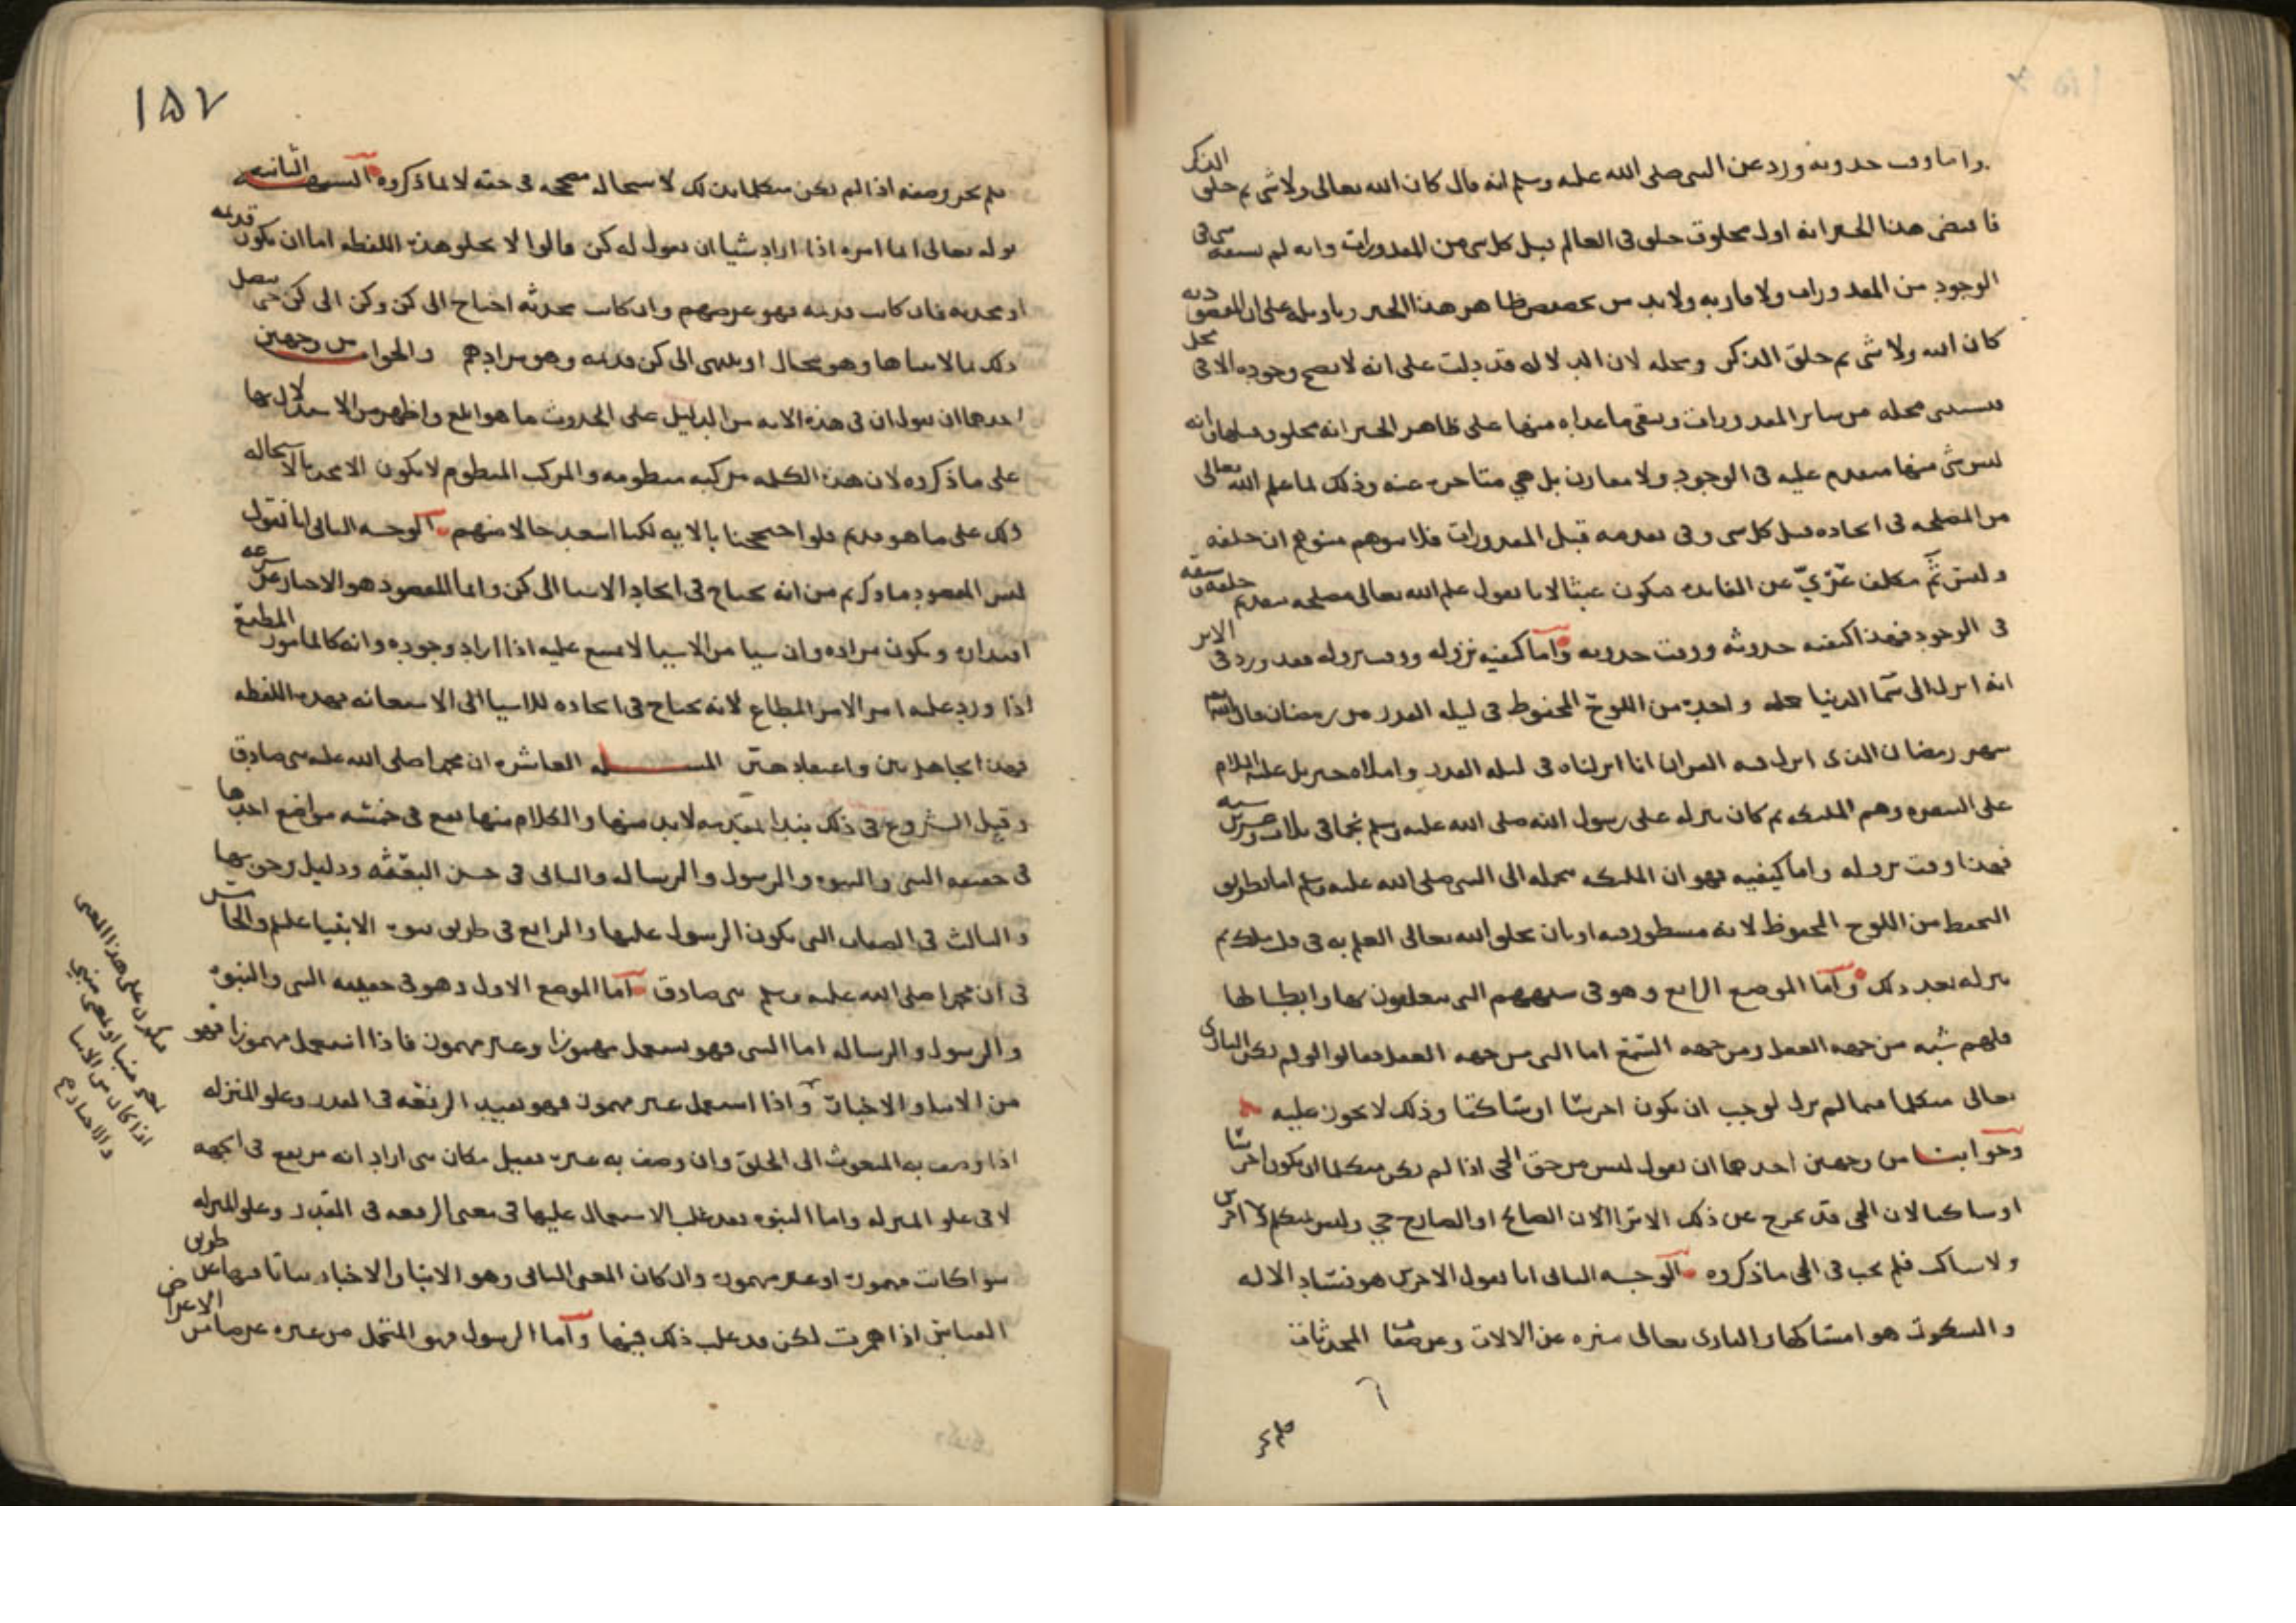 واما وقت حدوثه ورد عن النبي صلى الله عليه وسلم انه قال كان الله تعالى ولا شي ثم خلق الذكر
فاقتضى هذا الخبر انه اول مخلوق خلق في العالم قبل كل شي من المقدورات وانه لم يسبقه شي في
الوجود من المقدورات ولا قاربه ولا بد من تخصيص ظاهر هذا الخبر وتاويله على ان المقصود به
كان الله ولا شي ثم خلق الذكر ومحله لان الدلاله قد دلت على انه لا يصح وجوده الا في محل
فيستثنى محله من ساير المقدورات ويبقى ما عداه منها على ظاهر الخبر انه مخلوق قبلها وانه
ليس شي منها متقدم عليه في الوجود ولا مقارن بل هي متاخره عنه وذلك لما علم الله تعالى
من المصلحه في ايجاده قبل كل شي وفي تقدمه قبل المقدورات فلا يتوهم متوهم ان خلقه
وليس ثم مكلف عري عن الفايده فيكون عبثا لانا نقول علم الله تعالى مصلحه بتقديم خلقه وسبقه
في الوجود فهذا كيفيه حدوثه ووقت حدوثه واما كيفيه نزوله ووقت نزوله فقد ورد في الاثر
انه انزل الى سما الدنيا جمله واحده من اللوح المحفوظ في ليله القدر من رمضان قال الله تعالى
شهر رمضان الذي انزل فيه القران انا انزلناه في ليله القدر واملاه جبريل عليه السلام
على السفره وهم الملايكه ثم كان ينزله على رسول الله صلى الله عليه وسلم نجما في ثلاث وعشرين سنه
فهذا وقت نزوله واما كيفيته فهو ان الملايكه تحمله الى النبي صلى الله عليه وسلم اما بطريق
التحفظ من اللوح المحفوظ لانه مسطور فيه او بان يخلق الله تعالى العلم به في قلب ملك ثم
ينزله بعد ذلك واما الموضع الرابع وهو في شبههم التي يتعلقون بها وابطالها
فلهم شبه من جهه العقل ومن جهه السمع اما التي من جهه العقل فقالوا لو لم يكن الباري
تعالى متكلما فيما لم يزل لوجب ان يكون اخرسا او ساكتا وذلك لا يجوز عليه
وجوابنا من وجهين احدهما ان نقول ليس من حق الحي اذا لم يكن متكلما ان يكون اخرسا
او ساكتا لان الحي قد يخرج عن ذلك الا ترا ان الصائح او الصارخ حي وليس بمتكلم ولا اخرس
ولا ساكت فلم يجب في الحي ما ذكروه الوجه الثاني انا نقول الاخرس هو فساد الاله
والسكوت هو امساكها والباري تعالى منزه عن الالات وعن صفات المحدثات
١٥٧
فلم يجز وصفه اذا لم يكن متكلما بذلك لاستحاله مصححه في حقه لا لما ذكروه الشبهه الثانيه
قوله تعالى انما امره اذا اراد شيا ان يقول له كن قالوا لا يخلو هذه اللفظه اما ان تكون قديمه
او محدثه فان كانت قديمه فهو غرضهم وان كانت محدثه احتاج الى كن وكن الى كن حتى يتصل
ذلك بما لا يتناها وهو محال او ينتهي الى كن قديمه وهو مرادهم والجواب من وجهين
احدهما ان نقول ان في هذه الايه من الدليل على الحدوث ما هو ابلغ واظهر من الاستدلال بها
على ما ذكروه لان هذه الكلمه مركبه منظومه والمركب المنظوم لا يكون الا محدثا لاستحاله
ذلك على ما هو قديم فلو احتججنا بالايه لكنا اسعد حالا منهم الوجه الثاني انا نقول
ليس المقصود ما ذكرتم من انه يحتاج في ايجاد الاشيا الى كن وانما المقصود هو الاخبار عن سرعه
اقتداره وتكون مراده وان شيا من الاشيا لا يمتنع عليه اذا اراد وجوده وانه كالمامور المطيع
اذا ورد عليه امر الامر المطاع لانه يحتاج في ايجاده للاشيا الى الاستعانه بهذه اللفظه
فهذا بين واعتقاد حق المسله العاشره ان محمدا صلى الله عليه نبي صادق
وقبل الشروع في ذلك نبدا بمقدمه لا بد منها والكلام منها يقع في خمسه مواضع احدها
في حقيقه النبي والنبوه والرسول والرساله والثاني في حسن البعثه ودليل وجوبها
والثالث في الصفات التي يكون الرسول عليها والرابع في طريق نبوه الانبيا عليهم والخامس
في ان محمدا صلى الله عليه وسلم نبي صادق اما الموضع الاول وهو في حقيقه النبي والنبوه
والرسول والرساله اما النبي فهو يستعمل مهموزا وغير مهموز فاذا استعمل مهموزا فهو
من الانبا والاخبار واذا استعمل غير مهموز فهو يفيد الرفعه في القدر وعلو المنزله
اذا وصف به المبعوث الى الخلق وان وصف به غيره فقيل مكان نبي اراد انه مرتفع في الجهه
لا في علو المنزله واما النبوه فقد غلب الاستعمال عليها في معنى الرفعه في القدر وعلو المنزله
سوا كانت مهموزه او غير مهموزه وان كان المعنى الثاني وهو الانبا والاخبار ثابتا فيها عن طريق
القياس اذا همزت لكن قد غلب ذلك فيها واما الرسول فهو المتحمل من غيره غرضا من الاغراض
فيكون على هذا المعنى
اذا كان من الانبا
والاخبار